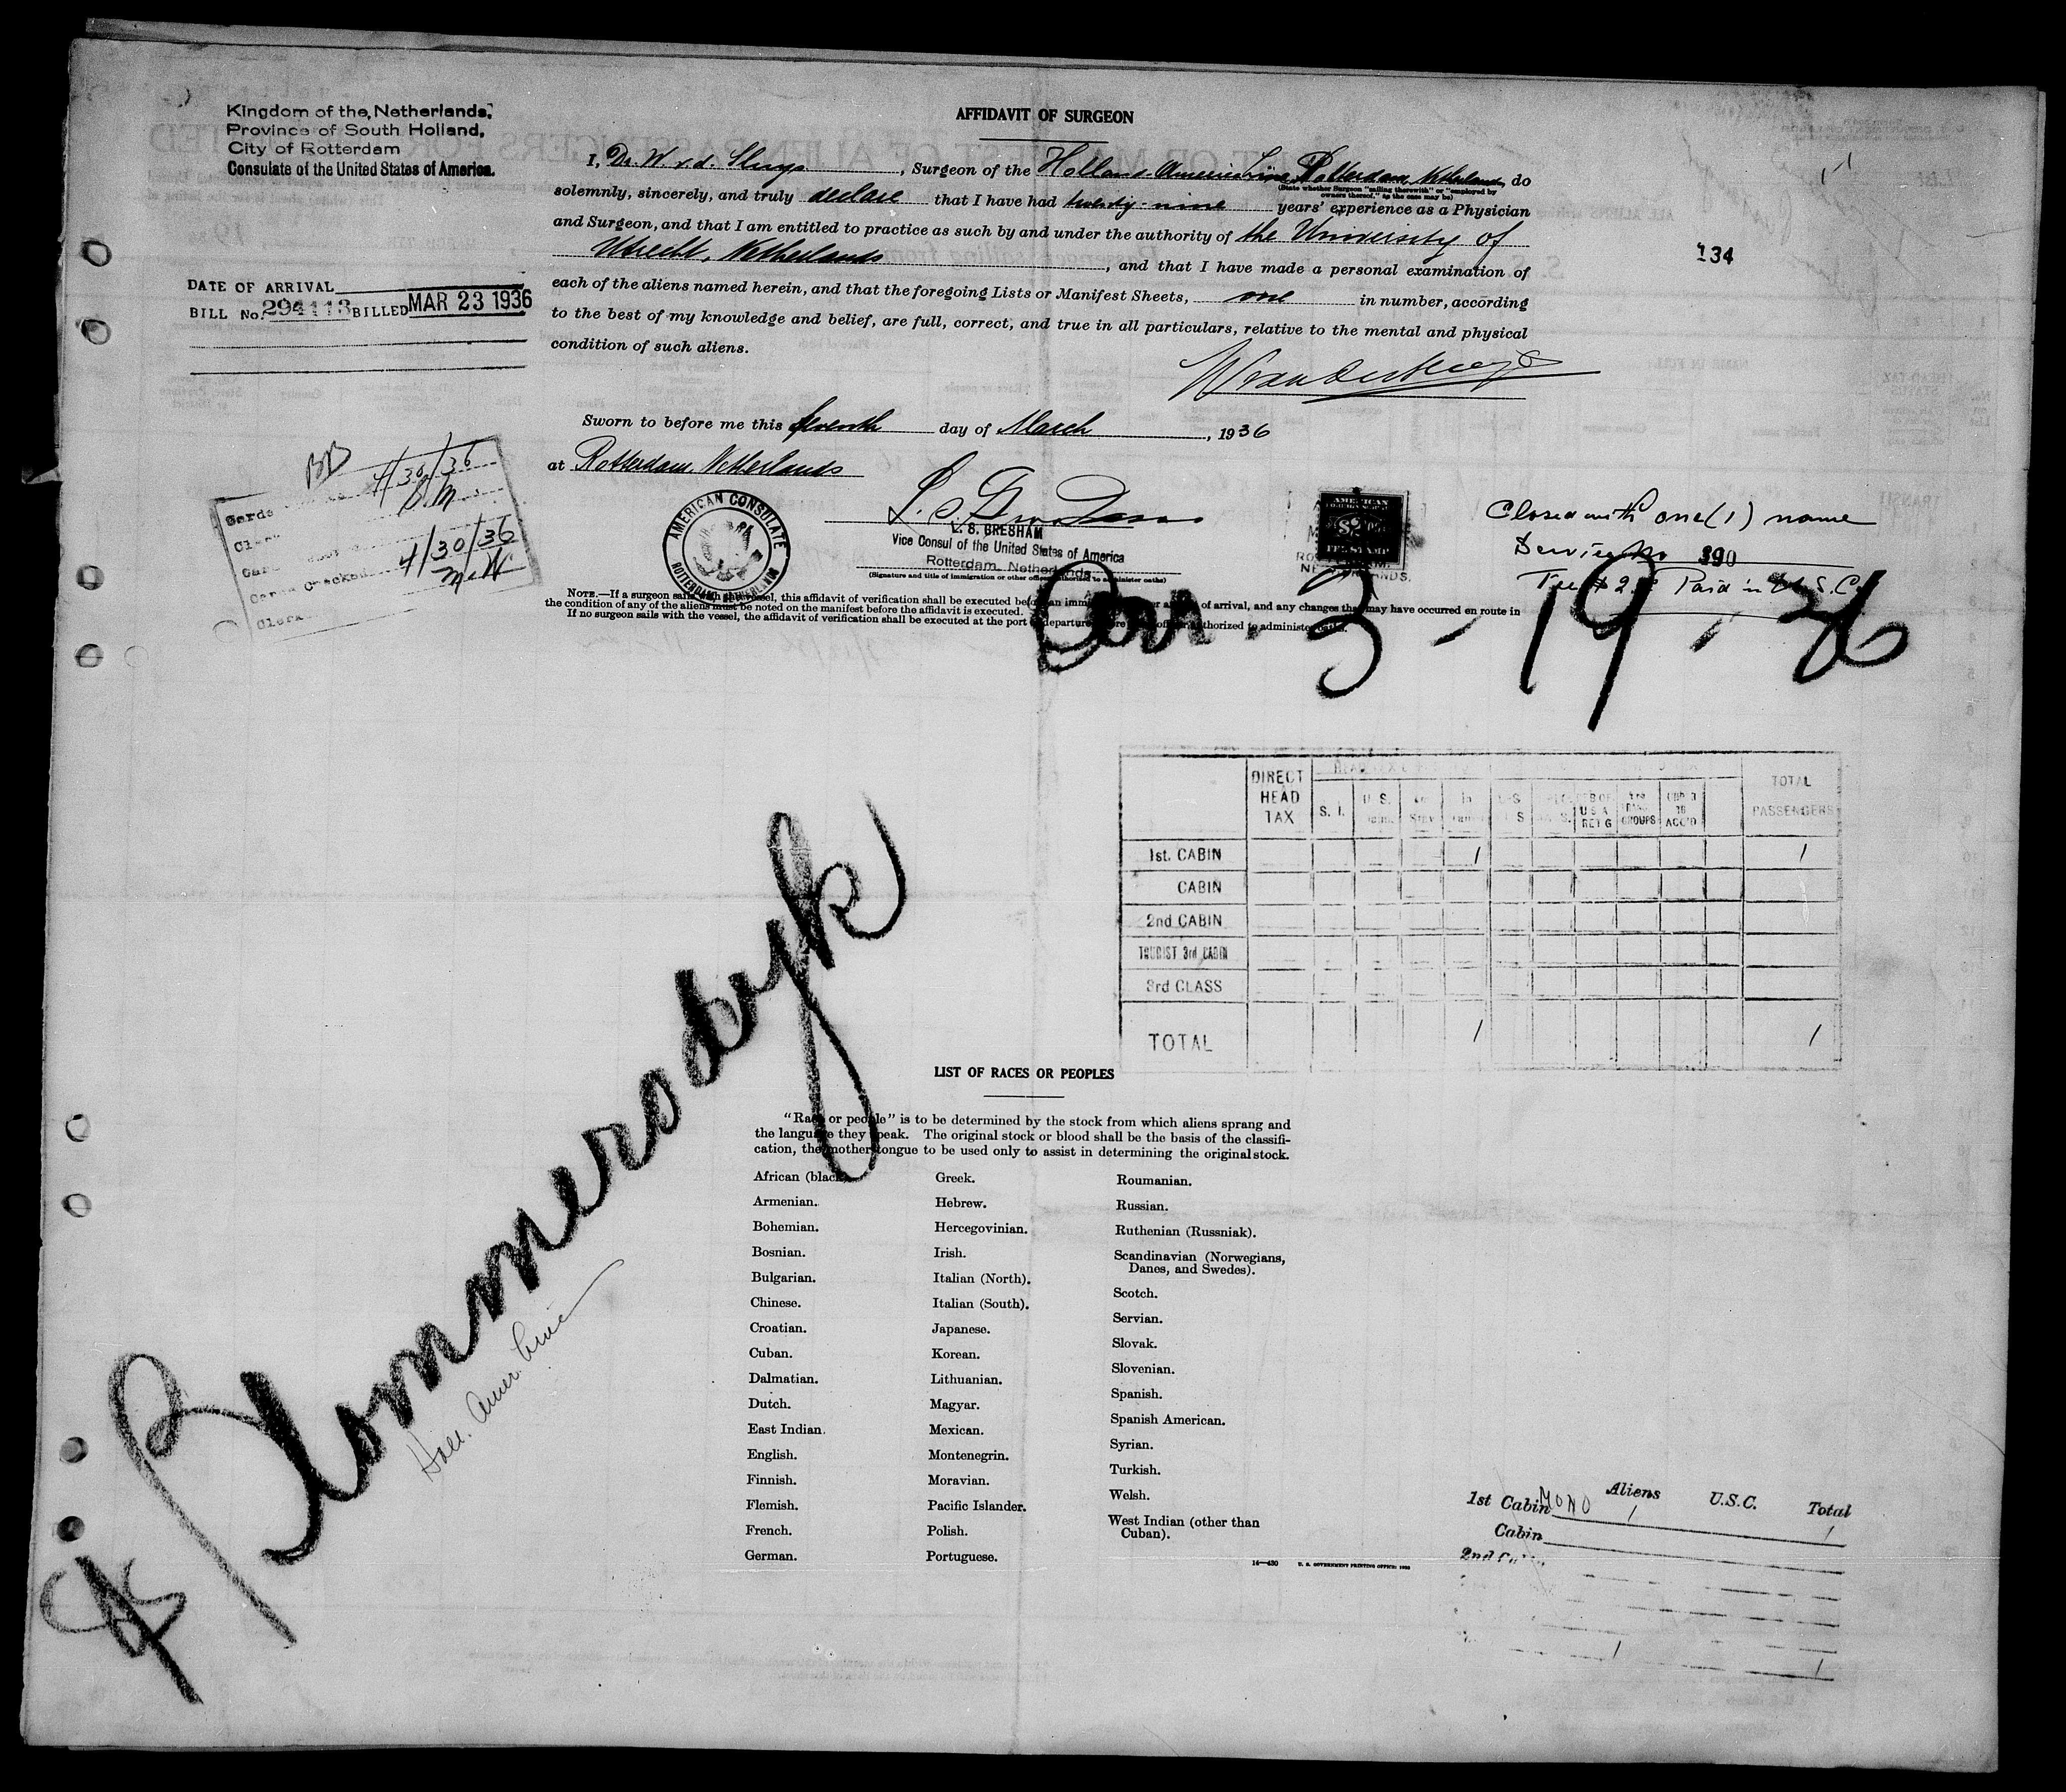 Kingdom of the Netherlands,
Province of South Holland,
City of Rotterdam
Consulate of the United States of America.
DATE OF ARRIVAL
BILL No. 294113 BILLED MAR 23 1936
AFFIDAVIT OF SURGEON
I, Dr. W. v. d. Sluys, Surgeon of the Holland America Line Rotterdam, Netherlands, do
(State whether Surgeon "sailing therewith" or "employed by
owners thereof," as the case may be)
solemnly, sincerely, and truly declare that I have had twenty-nine years' experience as a Physician
and Surgeon, and that I am entitled to practice as such by and under the authority of the University of
Utrecht, Netherlands, and that I have made a personal examination of
each of the aliens named herein, and that the foregoing Lists or Manifest Sheets, one in number, according
to the best of my knowledge and belief, are full, correct, and true in all particulars, relative to the mental and physical
condition of such aliens.
134
Sworn to before me this day of March, 1936
at Rotterdam, Netherlands
BB
4/30/36
Cards
4/30/36
Checked
Clerk
AMERICAN CONSULATE
ROTTERDAM, NETHERLANDS
L. S. BRESHAM
Vice Consul of the United States of America
Rotterdam, Netherlands
(Signature and title of immigration or other officer authorized to administer oaths)
AMERICAN
FEE STAMP
Closed with one (1) name
Service No 390
Fee $ 2.00 Paid in U.S.C.
NOTE.—If a surgeon sails with the vessel, this affidavit of verification shall be executed before an immigration officer of arrival, and any changes that may have occurred en route in
the condition of any of the aliens must be noted on the manifest before the affidavit is executed.
If no surgeon sails with the vessel, the affidavit of verification shall be executed at the port of departure before authorized to administer oaths.
3-19-36
DIRECT HEAD TAX
S. I.
U.S.
GROUPS
ACC'D
TOTAL PASSENGERS
1st. CABIN 1 1
CABIN
2nd CABIN
TOURIST 3rd CABIN
3rd CLASS
TOTAL 1 1
Blommersdyk
Holl. Amer. Line
LIST OF RACES OR PEOPLES
"Race or people" is to be determined by the stock from which aliens sprang and
the language they speak. The original stock or blood shall be the basis of the classifi-
cation, the mother tongue to be used only to assist in determining the original stock.
African (black)
Armenian.
Bohemian.
Bosnian.
Bulgarian.
Chinese.
Croatian.
Cuban.
Dalmatian.
Dutch.
East Indian.
English.
Finnish.
Flemish.
French.
German.
Greek.
Hebrew.
Hercegovinian.
Irish.
Italian (North).
Italian (South).
Japanese.
Korean.
Lithuanian.
Magyar.
Mexican.
Montenegrin.
Moravian.
Pacific Islander.
Polish.
Portuguese.
Roumanian.
Russian.
Ruthenian (Russniak).
Scandinavian (Norwegians,
Danes, and Swedes).
Scotch.
Servian.
Slovak.
Slovenian.
Spanish.
Spanish American.
Syrian.
Turkish.
Welsh.
West Indian (other than
Cuban).
14—430 U. S. GOVERNMENT PRINTING OFFICE:
Aliens U.S.C. Total
1st Cabin 1 1
Cabin
2nd Cabin
1 1